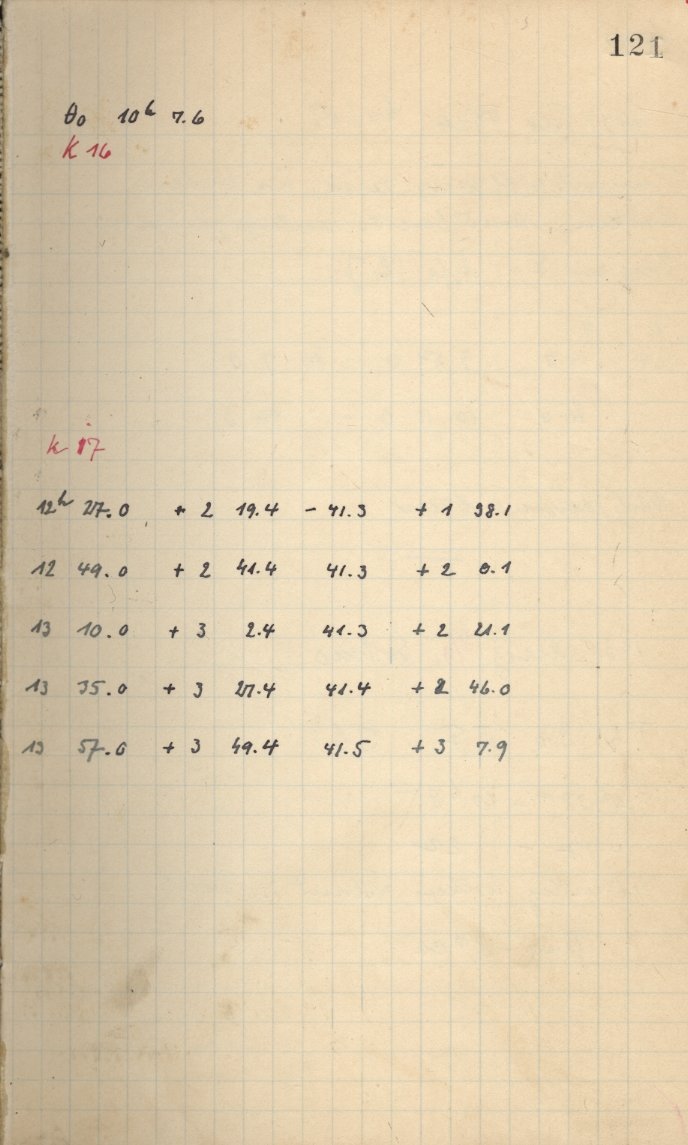 121
θ0 10h 7.6
K 16
k 17
12h 27.0 + 2 19.4 - 41.3 + 1 38.1
12 49.0 + 2 41.4 41.3 + 2 0.1
13 10.0 + 3 2.4 41.3 + 2 21.1
13 35.0 + 3 27.4 41.4 + 2 46.0
13 57.0 + 3 49.4 41.5 + 3 7.9